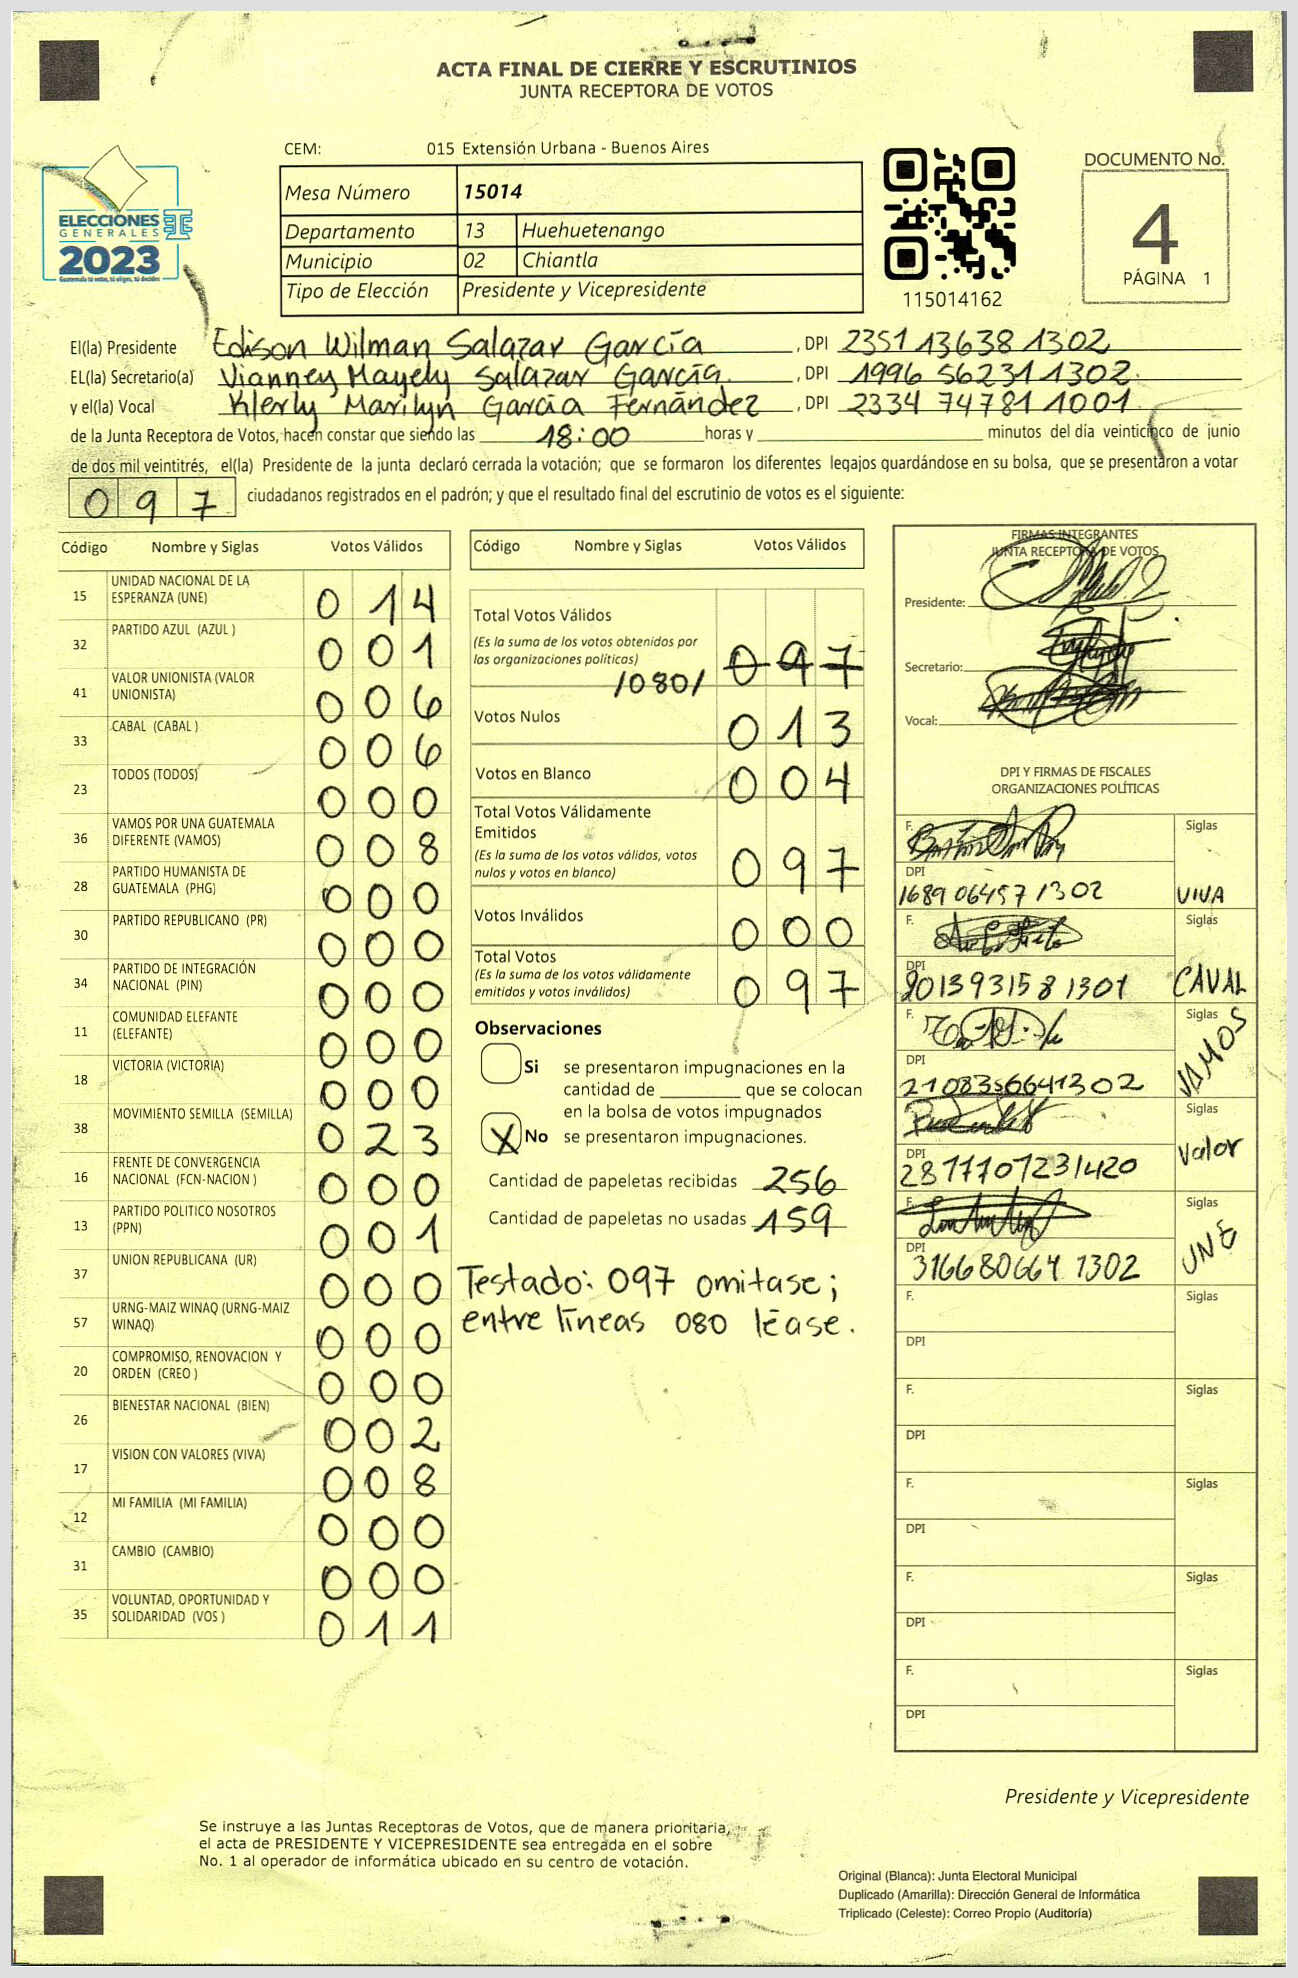 ACTA FINAL DE CIERRE Y ESCRUTINIOS
JUNTA RECEPTORA DE VOTOS
CEM: 015 Extensión Urbana - Buenos Aires
ELECCIONES
GENERALES
2023
Guatemala tú votas, tú eliges, tú decides
Mesa Número 15014
Departamento 13 Huehuetenango
Municipio 02 Chiantla
Tipo de Elección Presidente y Vicepresidente
115014162
DOCUMENTO No.
4
PÁGINA 1
El(la) Presidente Edison Wilman Salazar García , DPI 2351 13638 1302
EL(la) Secretario(a) Vianney Mayely Salazar García. , DPI 1996 56231 1302.
y el(la) Vocal Klerly Marilyn García Fernández , DPI 2334 74781 1001
de la Junta Receptora de Votos, hacen constar que siendo las 18:00 horas y minutos del día veinticinco de junio
de dos mil veintitrés, el(la) Presidente de la junta declaró cerrada la votación; que se formaron los diferentes legajos guardándose en su bolsa, que se presentaron a votar
097 ciudadanos registrados en el padrón; y que el resultado final del escrutinio de votos es el siguiente:
Código Nombre y Siglas Votos Válidos
15 UNIDAD NACIONAL DE LA ESPERANZA (UNE) 014
32 PARTIDO AZUL (AZUL ) 001
41 VALOR UNIONISTA (VALOR UNIONISTA) 006
33 CABAL (CABAL ) 006
23 TODOS (TODOS) 000
36 VAMOS POR UNA GUATEMALA DIFERENTE (VAMOS) 008
28 PARTIDO HUMANISTA DE GUATEMALA (PHG) 000
30 PARTIDO REPUBLICANO (PR) 000
34 PARTIDO DE INTEGRACIÓN NACIONAL (PIN) 000
11 COMUNIDAD ELEFANTE (ELEFANTE) 000
18 VICTORIA (VICTORIA) 000
38 MOVIMIENTO SEMILLA (SEMILLA) 023
16 FRENTE DE CONVERGENCIA NACIONAL (FCN-NACION ) 000
13 PARTIDO POLITICO NOSOTROS (PPN) 001
37 UNION REPUBLICANA (UR) 000
57 URNG-MAIZ WINAQ (URNG-MAIZ WINAQ) 000
20 COMPROMISO, RENOVACION Y ORDEN (CREO ) 000
26 BIENESTAR NACIONAL (BIEN) 002
17 VISION CON VALORES (VIVA) 008
12 MI FAMILIA (MI FAMILIA) 000
31 CAMBIO (CAMBIO) 000
35 VOLUNTAD, OPORTUNIDAD Y SOLIDARIDAD (VOS ) 011
Código Nombre y Siglas Votos Válidos
Total Votos Válidos
(Es la suma de los votos obtenidos por
las organizaciones políticas) 097
/080/
Votos Nulos 013
Votos en Blanco 004
Total Votos Válidamente
Emitidos
(Es la suma de los votos válidos, votos
nulos y votos en blanco) 097
Votos Inválidos 000
Total Votos
(Es la suma de los votos válidamente
emitidos y votos inválidos) 097
Observaciones
Si se presentaron impugnaciones en la
cantidad de ________ que se colocan
en la bolsa de votos impugnados
X No se presentaron impugnaciones.
Cantidad de papeletas recibidas 256
Cantidad de papeletas no usadas 159
Testado: 097 omitase;
entre líneas 080 léase.
FIRMAS INTEGRANTES
JUNTA RECEPTORA DE VOTOS
Presidente:
Secretario:
Vocal:
DPI Y FIRMAS DE FISCALES
ORGANIZACIONES POLÍTICAS
F. Siglas
DPI
1689 06457 1302 VIVA
F. Siglas
DPI
20139315 8 1301 CAVAL
F. Siglas
DPI
2108356641302 VAMOS
F. Siglas
DPI
2877707231420 Valor
F. Siglas
DPI
316680664 1302 UNE
F. Siglas
DPI
F. Siglas
DPI
F. Siglas
DPI
F. Siglas
DPI
F. Siglas
DPI
Presidente y Vicepresidente
Se instruye a las Juntas Receptoras de Votos, que de manera prioritaria,
el acta de PRESIDENTE Y VICEPRESIDENTE sea entregada en el sobre
No. 1 al operador de informática ubicado en su centro de votación.
Original (Blanca): Junta Electoral Municipal
Duplicado (Amarilla): Dirección General de Informática
Triplicado (Celeste): Correo Propio (Auditoría)